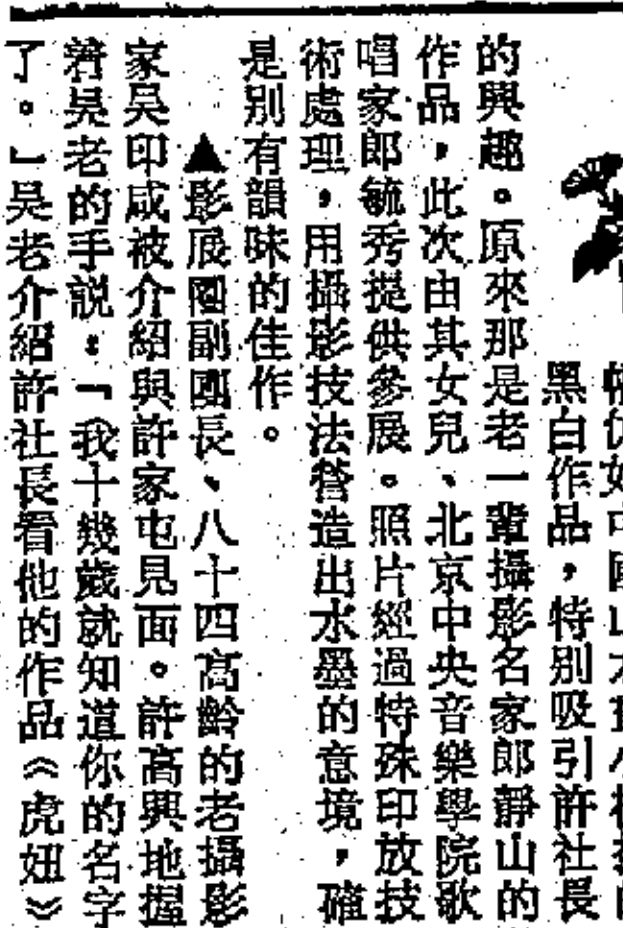 黑白作品，特別吸引許社長
的興趣。原來那是老一輩攝影名家郎靜山的
作品，此次由其女兒、北京中央音樂學院歌
唱家郎毓秀提供參展。照片經過特殊印放技
術處理，用攝影技法營造出水墨的意境，確
是別有韻味的佳作。
▲影展團副團長、八十四高齡的老攝影
家吳印咸被介紹與許家屯見面。許高興地握
着吳老的手説：「我十幾歲就知道你的名字
了。」吳老介紹許社長看他的作品《虎妞》